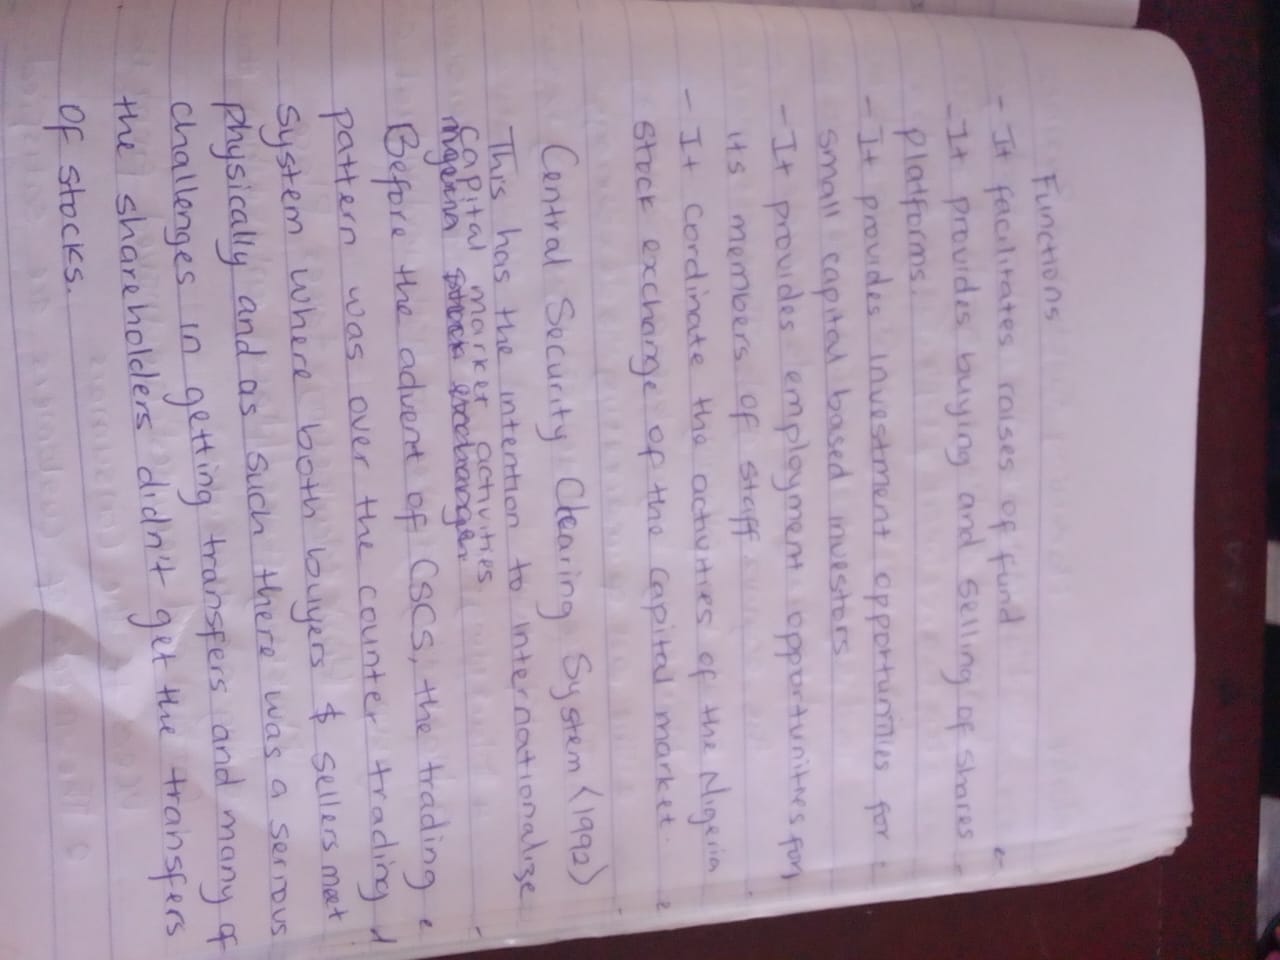 Functions
- It facilitates raises of fund
- It provides buying and selling of shares
platforms.
- It provides investment opportunities for
small capital based investors
- It provides employment opportunities for
its members of staff
- It cordinate the activities of the Nigeria
stock exchange of the capital market.
Central Security Clearing System (1992)
This has the intention to internationalize
capital market activities
Before the advent of CSCS, the trading
pattern was over the counter trading
system where both buyers & sellers meet
physically and as such there was a serious
challenges in getting transfers and many of
the shareholders didn't get the transfers
of stocks.